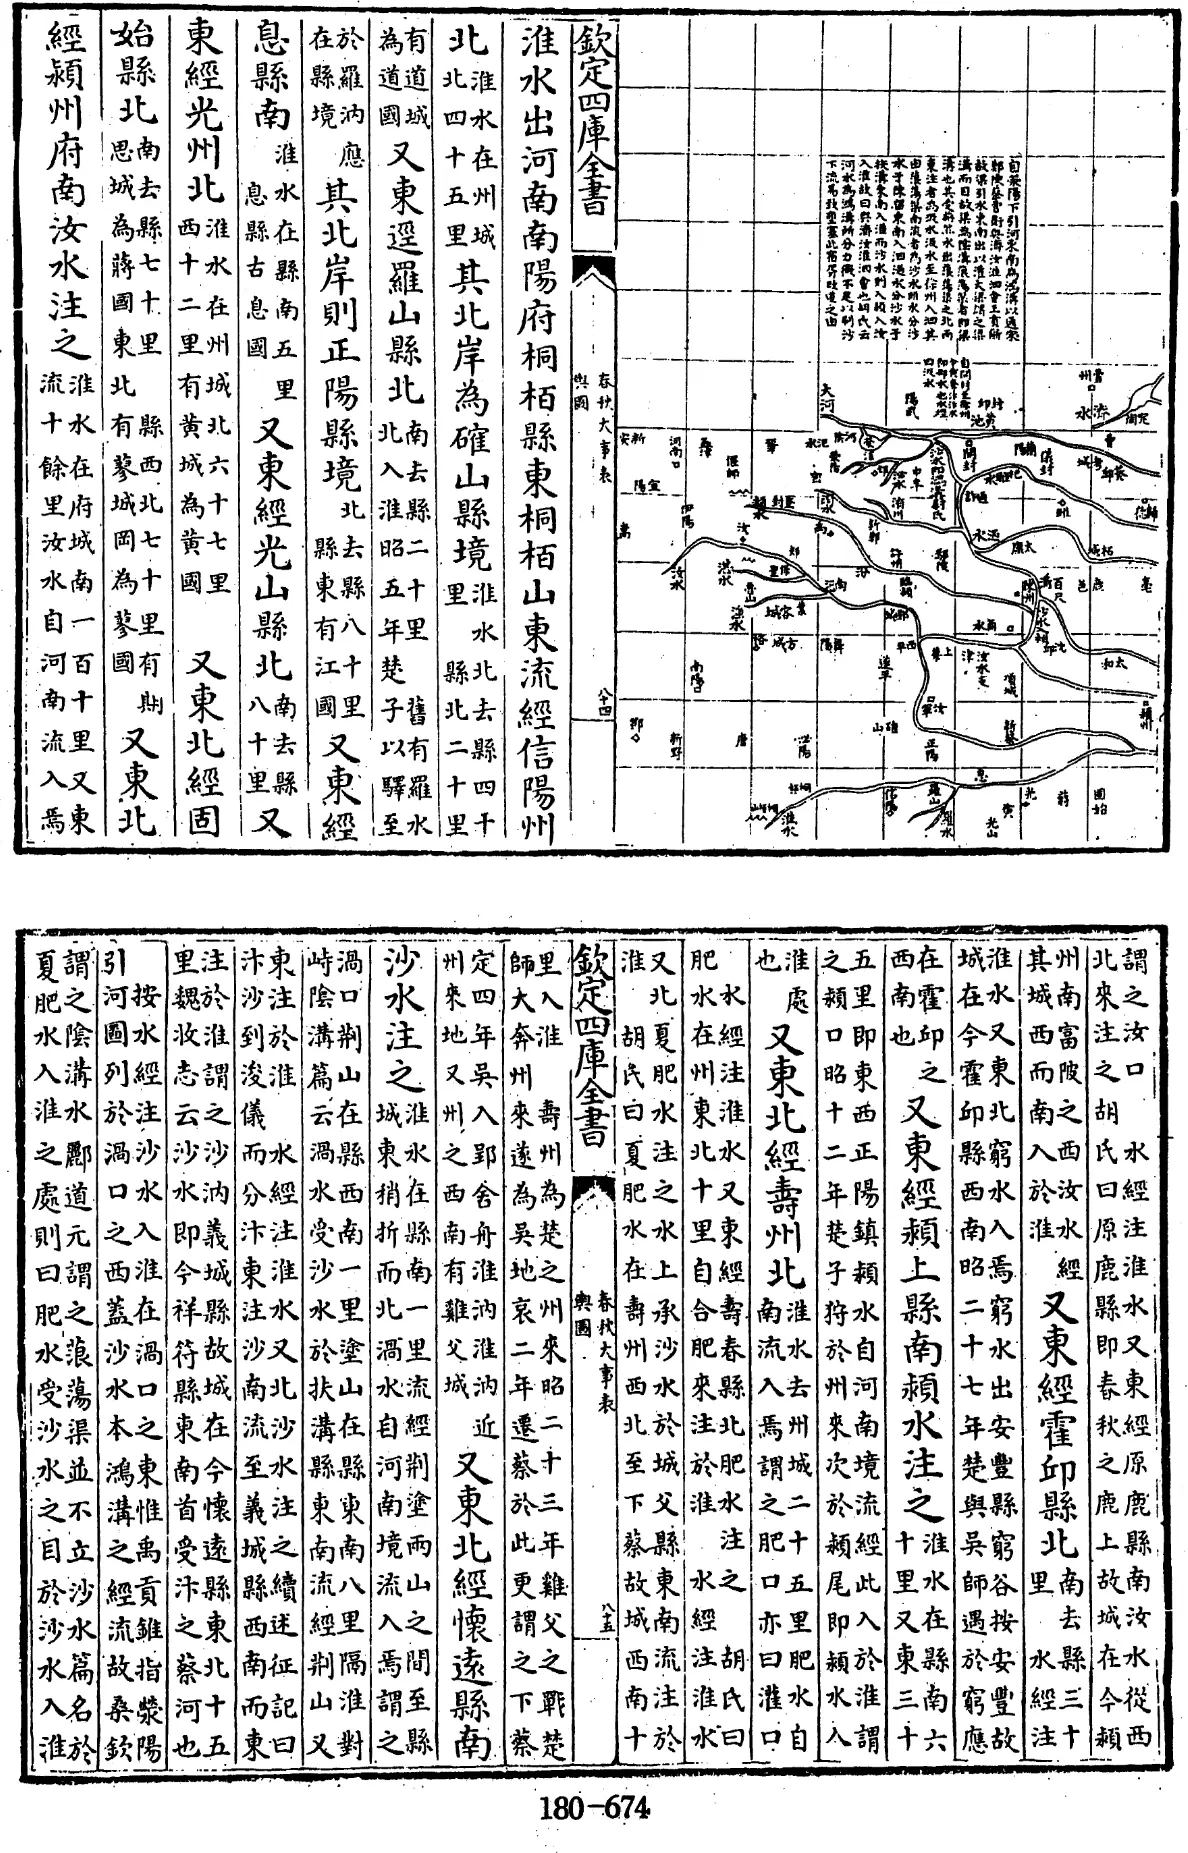 自滎陽下引河東南為鴻溝以通宋
大河
淮水
汝水
洪水
開封
滎陽
新鄭
鄢陵
太康
南陽
新野
唐
泌陽
信陽
羅山
光山
息
光
蔣
固始
潁州
項城
新蔡
正陽
欽定四庫全書
春秋大事表
輿圖
八十四
淮水出河南南陽府桐栢縣東桐栢山東流經信陽州
北淮水在州城北四十五里其北岸為確山縣境淮水北去縣四十里縣北二十里
有道城為道國又東逕羅山縣北南去縣二十里舊有羅水北入淮昭五年楚子以驛至
於羅汭應在縣境其北岸則正陽縣境北去縣八十里縣東有江國又東經
息縣南淮水在縣南五里息縣古息國又東經光山縣北南去縣八十里又
東經光州北淮水在州城北六十七里西十二里有黃城為黃國又東北經固
始縣北南去縣七十里縣西北七十里有期思城為蔣國東北有蓼城岡為蓼國又東北
經潁州府南汝水注之淮水在府城南一百十里又東流十餘里汝水自河南流入焉
謂之汝口水經注淮水又東經原鹿縣南汝水從西北來注之胡氏曰原鹿縣即春秋之鹿上故城在今潁
州南富陂之西汝水經其城西而南入於淮又東經霍邱縣北南去縣三十里水經注
淮水又東北窮水入焉窮水出安豐縣窮谷按安豐故城在今霍邱縣西南昭二十七年楚與吳師遇於窮應
在霍邱之西南也又東經潁上縣南潁水注之淮水在縣南六十里又東三十
五里即東西正陽鎮潁水自河南境流經此入於淮謂之潁口昭十二年楚子狩於州來次於潁尾即潁水入
淮處也又東北經壽州北淮水去州城二十五里肥水自南流入焉謂之肥口亦曰灌口
水經注淮水又東經壽春縣北肥水注之胡氏曰肥水在州東北十里自合肥來注於淮水經注淮水
又北夏肥水注之水上承沙水於城父縣東南流注於淮胡氏曰夏肥水在壽州西北至下蔡故城西南十
欽定四庫全書
春秋大事表
輿圖
八十五
里入淮壽州為楚之州來昭二十三年雞父之戰楚師大奔州來遂為吳地哀二年遷蔡於此更謂之下蔡
定四年吳入郢舍舟淮汭淮汭近州來地又州之西南有雞父城又東北經懷遠縣南
沙水注之淮水在縣南一里流經荆塗兩山之間至縣城東稍折而北渦水自河南境流入焉謂之
渦口荆山在縣西南一里塗山在縣東南八里隔淮對峙陰溝篇云渦水受沙水於扶溝縣東南流經荆山又
東注於淮水經注淮水又北沙水注之續述征記曰汴沙到浚儀而分汴東注沙南流至義城縣西南而東
注於淮謂之沙汭義城縣故城在今懷遠縣東北十五里魏收志云沙水即今祥符縣東南首受汴之蔡河也
按水經注沙水入淮在渦口之東惟禹貢錐指滎陽引河圖列於渦口之西蓋沙水本鴻溝之經流故桑欽
謂之陰溝水酈道元謂之蒗蕩渠並不立沙水篇名於夏肥水入淮之處則曰肥水受沙水之目於沙水入淮
180-674